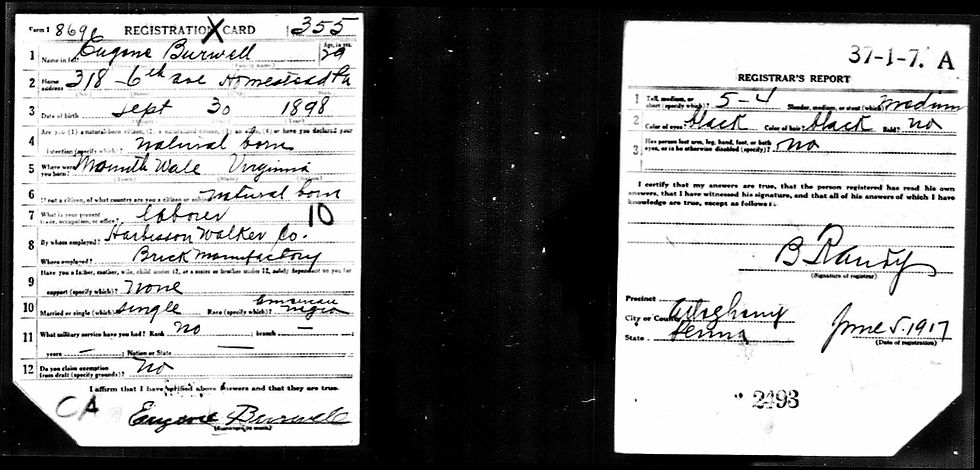 Form 1 8696 REGISTRATION CARD 355
1 Name in full Eugene Burwell Age, in yrs. 29
2 Home address 318 - 6th ave Homestead Pa
3 Date of birth Sept 30 1898
4 Are you (1) a natural-born citizen, (2) a naturalized citizen, (3) an alien, (4) or have you declared your
intention (specify which)? natural born
5 Where were you born? Wale Virginia
6 If not a citizen, of what country are you a citizen or subject? natural born
7 What is your present trade, occupation, or office? laborer 10
8 By whom employed? Harbisson Walker Co.
Where employed? Brick Manufactory
9 Have you a father, mother, wife, child under 12, or a sister or brother under 12, solely dependent on you for
support (specify which)? None
10 Married or single (which)? single Race (specify which)? negro
11 What military service have you had? Rank No branch —
years — ; Nation or State —
12 Do you claim exemption from draft (specify grounds)? No
I affirm that I have verified above answers and that they are true.
CA
Eugene Burwell
(Signature or mark)
37-1-7. A
REGISTRAR'S REPORT
1 Tall, medium, or short (specify which)? 5-4 Slender, medium, or stout (which)? medium
2 Color of eyes? black Color of hair? black Bald? No
3 Has person lost arm, leg, hand, foot, or both eyes, or is he otherwise disabled (specify)? No
I certify that my answers are true, that the person registered has read his own
answers, that I have witnessed his signature, and that all of his answers of which I have
knowledge are true, except as follows:
B Randy
(Signature of registrar)
Precinct
City or County Alleghany
State Penna
June 5. 1917
(Date of registration)
2493